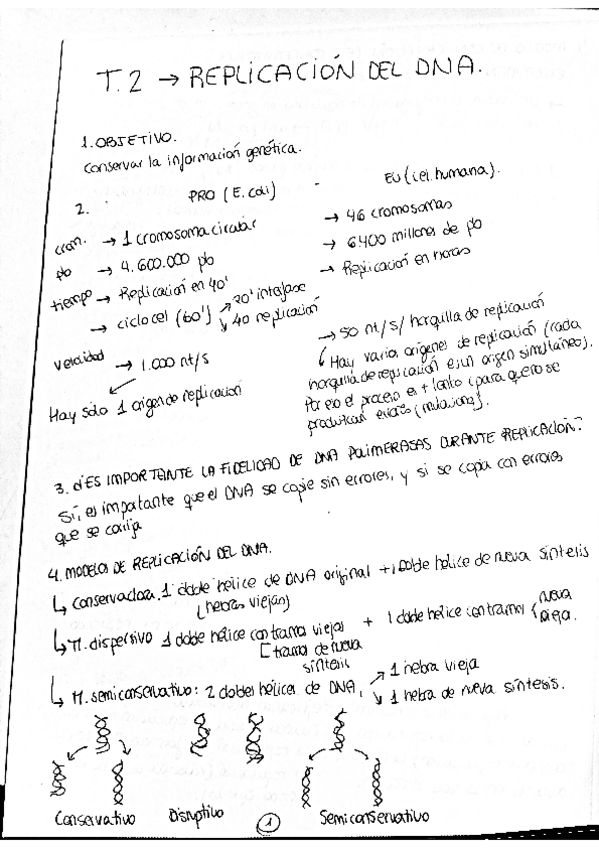 T.2 → REPLICACIÓN DEL DNA.
1. OBJETIVO.
Conservar la información genética.
2. PRO (E. coli) EU (cél. humana).
crom. → 1 cromosoma circular → 46 cromosomas
pb → 4.600.000 pb → 6400 millones de pb
tiempo → Replicación en 40' → Replicación en horas
→ ciclo cel (60') ↗ 20' interfase
↘ 40 replicación
velocidad → 1.000 nt/s → 50 nt/s/horquilla de replicación
Hay sólo 1 origen de replicación
Hay varios orígenes de replicación (cada
horquilla de replicación es un origen simultáneo).
Por eso el proceso es + lento (para que no se
produzcan errores (mutaciones).
3. ¿ES IMPORTANTE LA FIDELIDAD DE DNA POLIMERASAS DURANTE REPLICACIÓN?
Sí, es importante que el DNA se copie sin errores, y si se copia con errores
que se corrija
4. MODELOS DE REPLICACIÓN DEL DNA.
↳ Conservadora. 1 doble hélice de DNA original + 1 doble hélice de nueva síntesis
(hebras viejas)
↳ M. dispersivo 1 doble hélice con tramos viejos + 1 doble hélice con tramos { nueva
[ tramos de nueva vieja.
síntesis
↳ M. semiconservativo: 2 dobles hélices de DNA, ↗ 1 hebra vieja
↘ 1 hebra de nueva síntesis.
Conservativo Disruptivo Semiconservativo
1